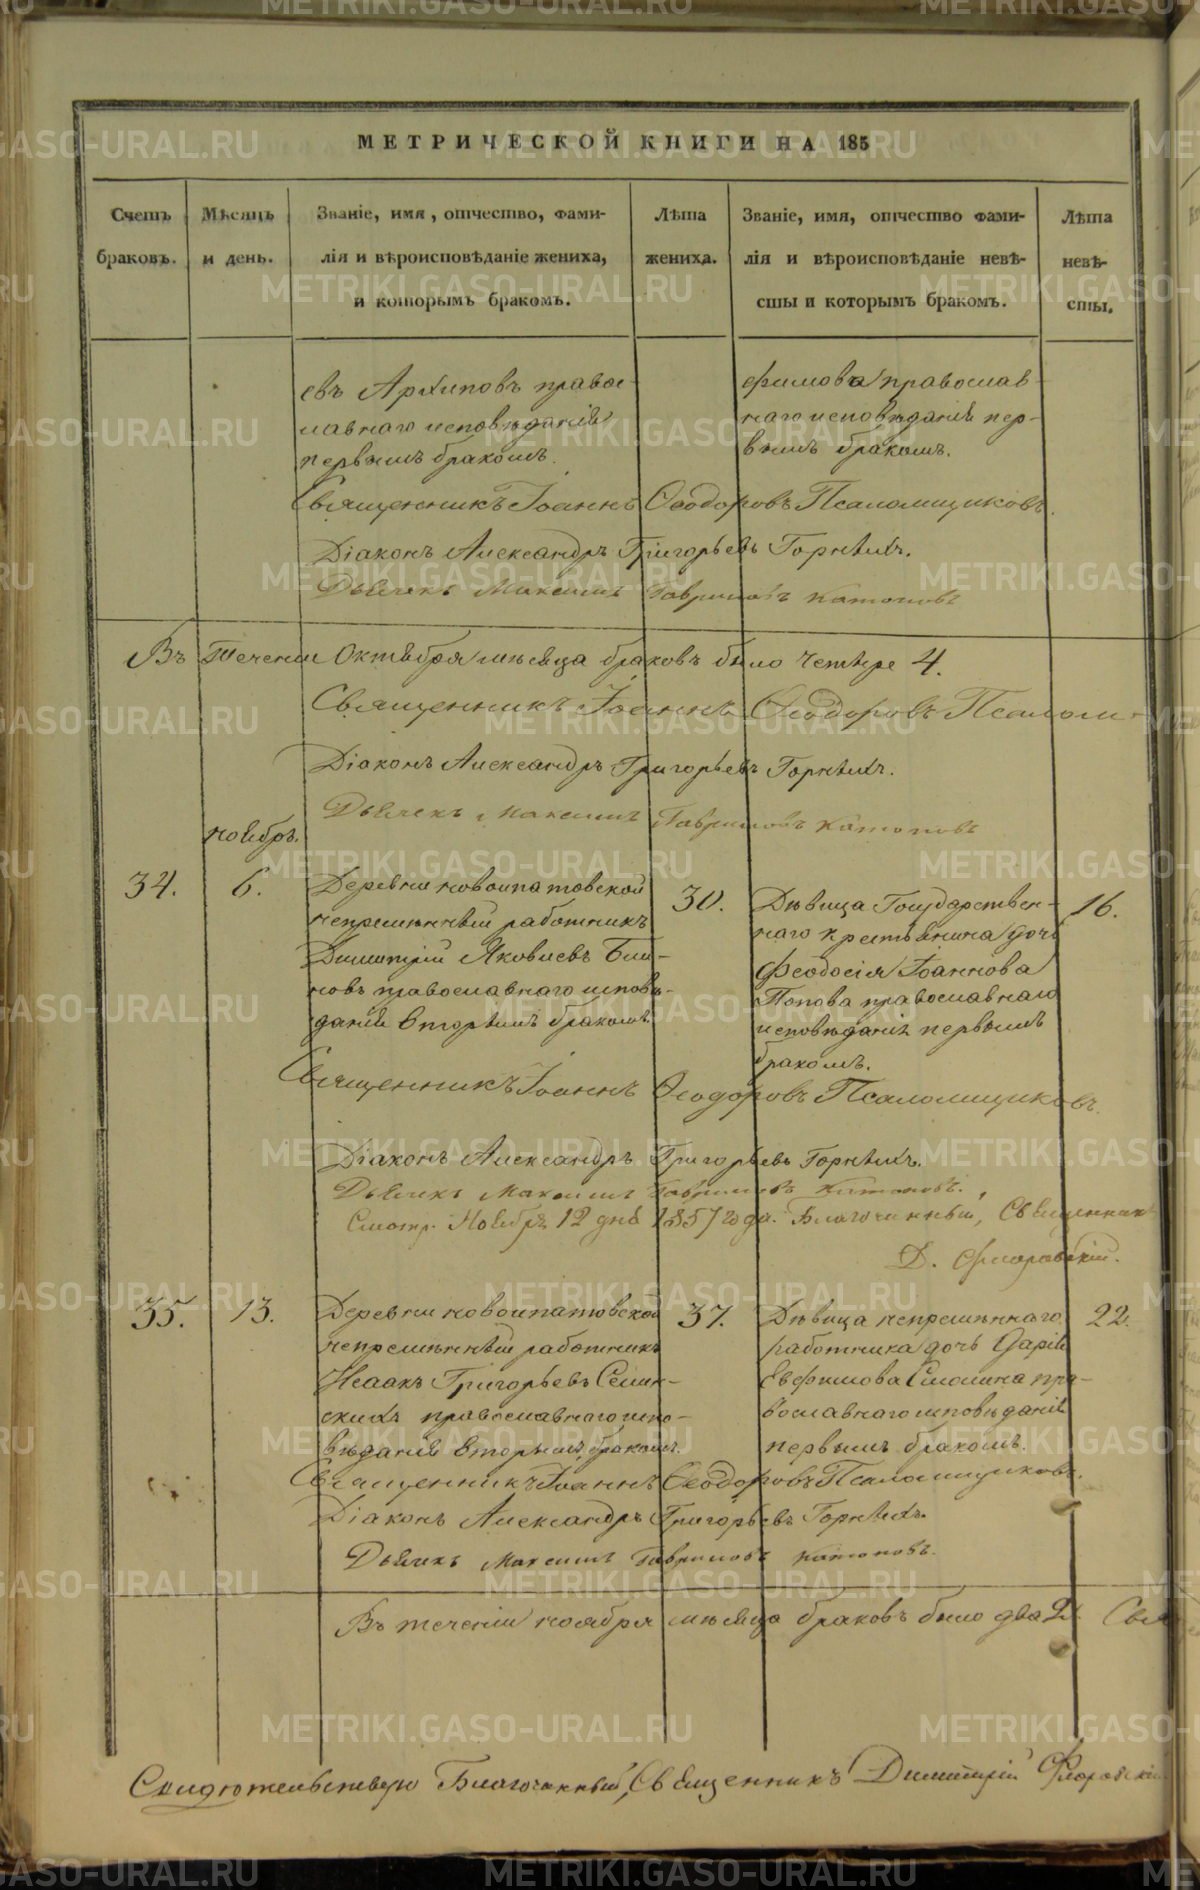 МЕТРИЧЕСКОЙ КНИГИ НА 185
Счетъ браковъ.
Мѣсяцъ и день.
Званіе, имя, отчество, фами-
лія и вѣроисповѣданіе жениха,
и которымъ бракомъ.
Лѣта жениха.
Званіе, имя, отчество фами-
лія и вѣроисповѣданіе невѣ-
сты и которымъ бракомъ.
Лѣта невѣ-
сты.
евъ Архиповъ право-
славнаго исповѣданія
первымъ бракомъ.
фимова православ-
наго исповѣданія пер-
вымъ бракомъ.
Священникъ Іоаннъ Ѳеодоровъ Псаломщиковъ.
Діаконъ Александръ Григорьевъ Горныхъ.
Дьячекъ Максимъ Гавриловъ Катаповъ
Въ течении Октября мѣсяца браковъ было четыре 4.
Священникъ Іоаннъ Ѳеодоровъ Псалом-
Діаконъ Александръ Григорьевъ Горныхъ.
Дьячекъ Максимъ Гавриловъ Катаповъ
ноябрь.
34.
6.
Деревни новоипатовской
непремѣнный работникъ
Димитрій Яковлевъ Бли-
новъ православнаго исповѣ-
данія вторымъ бракомъ.
30.
Дѣвица Государствен-
наго крестьянина дочь
Феодосія Іоаннова
Попова православнаго
исповѣданія первымъ
бракомъ.
16.
Священникъ Іоаннъ Ѳеодоровъ Псаломщиковъ.
Діаконъ Александръ Григорьевъ Горныхъ.
Дьячекъ Максимъ Гавриловъ Катаповъ.
Смотр. Ноябрь 12 дня 1857 года. Благочинный, Священникъ
Д. Флоровскій.
35.
13.
Деревни новоипатовской
непремѣнный работникъ
Исаакъ Григорьевъ Семин-
скихъ православнаго испо-
вѣданія вторымъ бракомъ.
37.
Дѣвица непремѣннаго
работника дочь Дарія
Евфимова Смолина пра-
вославнаго исповѣданія
первымъ бракомъ.
22.
Священникъ Іоаннъ Ѳеодоровъ Псаломщиковъ.
Діаконъ Александръ Григорьевъ Горныхъ.
Дьячекъ Максимъ Гавриловъ Катаповъ.
Въ течении ноября мѣсяца браковъ было два 2. Свя
Свидѣтельствую Благочинный, Священникъ Димитрій Флоровскій
METRIKI.GASO-URAL.RU